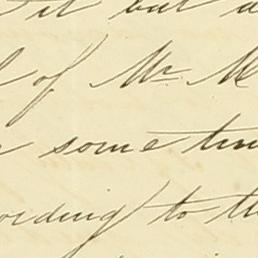 it but a
of Mr. M
some tim
ording to th